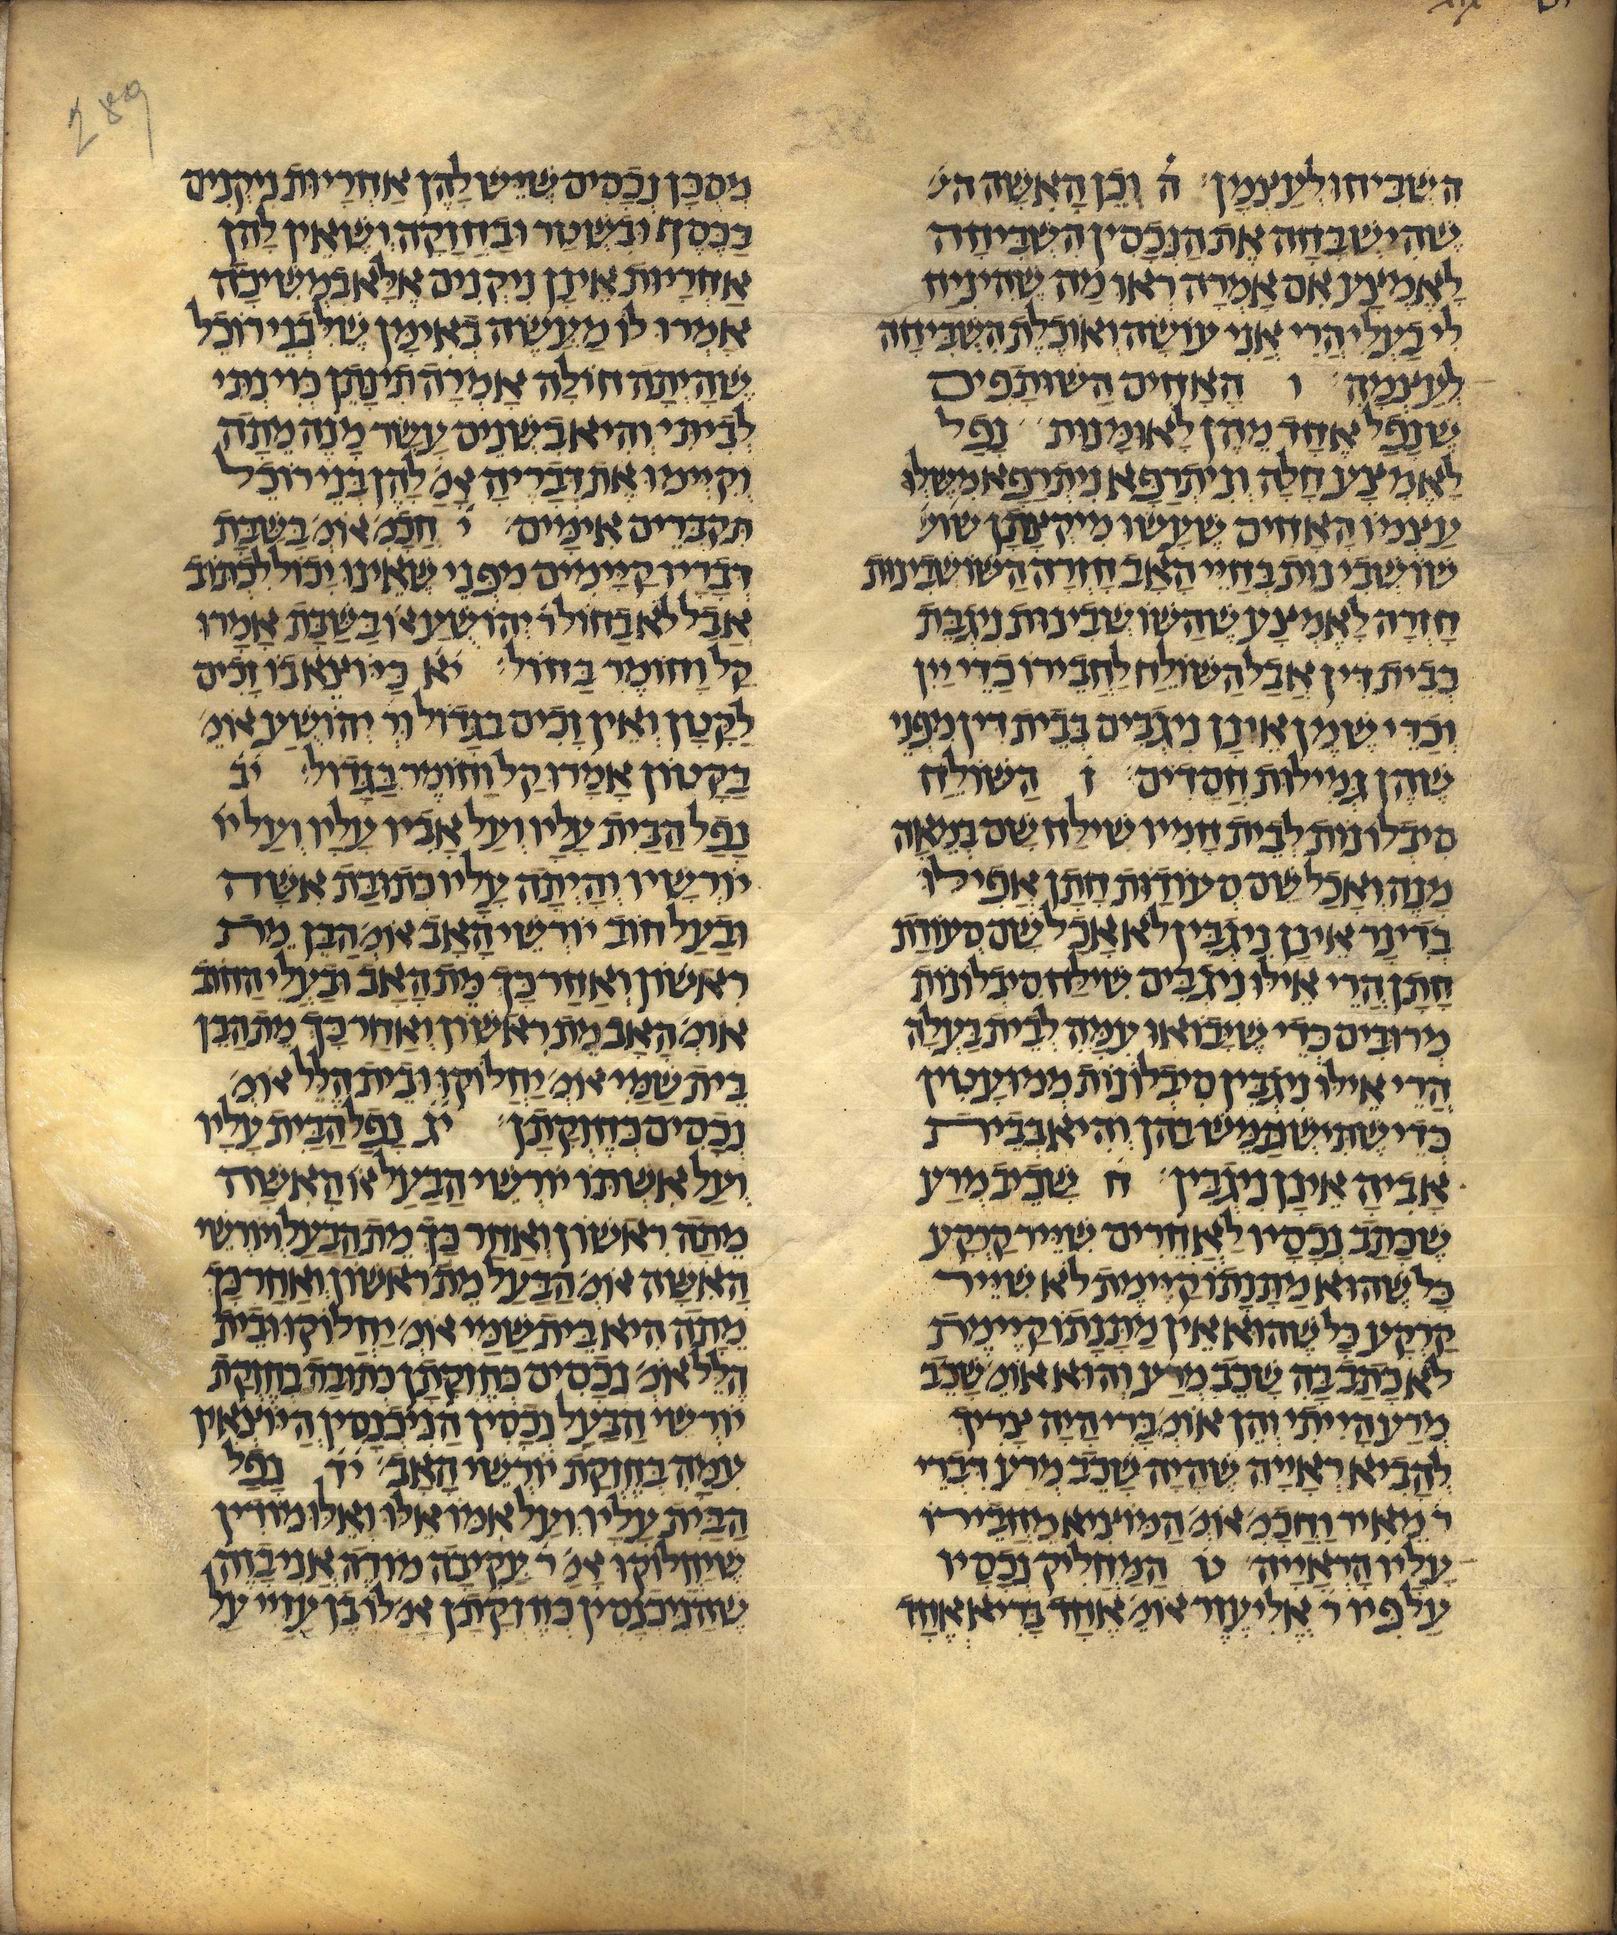 289
השביחו לעצמן ה וכן האשה הי׳
שהישבחה את הנכסין השביחה
לאמצע אם אמרה ראו מה שהיניח
לי בעלי הרי אני עושה ואוכלת השביחה
לעצמה ו האחים השותפים
שנפל אחד מהן לאומנות נפל
לאמצע חלה וניתרפא ניתרפא משלו
עצמו האחים שעשו מיקצתן שוש׳
שושבינות בחיי האב חזרה השושבינות
חזרה לאמצע שהשושבינות ניגבת
כבית דין אבל השולח לחבירו כדי יין
וכדי שמן אינן ניגבים בבית דין מפני
שהן גמילות חסדים ז השולח
סיבלונות לבית חמיו שילח שם במאה
מנה ואכל שם סעודות חתן אפילו
בדינר אינן ניגבין לא אכל שם סעודת
חתן הרי אילו ניגבים שילח סיבלונות
מרובים כדי שיבואו עמה לבית בעלה
הרי אילו ניגבין סיבלונות ממועטין
כדי שתישתמש בהן והיא בבית
אביה אינן ניגבין ח שכיב מרע
שכתב נכסיו לאחרים שייר קרקע
כל שהוא מתנתו קיימת לא שייר
קרקע כל שהוא אין מתנתו קיימת
לא כתב בה שכב מרע והוא אומ׳ שכב
מרע הייתי והן אומ׳ ברי היה צריך
להביא ראייה שהיה שכב מרע דברי
ר מאיר וחכמ׳ אומ׳ המוציא מחבירו
עליו הראייה ט המחליק נכסיו
על פיו ר׳ אליעזר אומ׳ אחד בריא אחד
מסכן נכסים שיש להן אחריות ניקנים
בכסף ובשטר ובחזקה ושאין להן
אחריות אינן ניקנים אלא במשיכה
אמרו לו מעשה באימן של בני רוכל
שהיתה חולה אמרה תינתן כוינתי
לביתי והיא בשנים עשר מנה מתה
וקיימו את דבריה אמ׳ להן בני רוכל
תקברים אימים י חכמ׳ אומ׳ בשבת
דבריו קיימים מפני שאינו יכול לכתוב
אבל לא בחול ר׳ יהושע או׳ בשבת אמרו
קל וחומר בחול יא כיוצא בו זכים
לקטן ואין זכים בגדול ור׳ יהושע אומ׳
בקטון אמרו קל וחומר בגדול יב
נפל הבית עליו ועל אביו עליו ועל יו׳
יורשיו והיתה עליו כתובת אשה
ובעל חוב יורשי האב אומ׳ הבן מת
ראשון ואחר כך מת האב ובעלי החוב
אומ׳ האב מת ראשון ואחר כך מת הבן
בית שמי אומ׳ יחלוקו ובית הלל אומ׳
נכסים כחזקתן יג נפל הבית עליו
ועל אשתו יורשי הבעל או׳ האשה
מתה ראשון ואחר כך מת הבעל ויורשי
האשה אומ׳ הבעל מת ראשון ואחר כך
מתה היא בית שמי אומ׳ יחלוקו ובית
הלל אומ׳ נכסים כחזקתן כתובה בחזקת
יורשי הבעל נכסין הניכנסין היוצאין
עמה בחזקת יורשי האב יד נפל
הבית עליו ועל אמו אלו ואלו מודין
שיחלוקו אמ׳ ר׳ עקיבה מודה אני בזה
שהניכנסין כחזקתן אמ׳ לו בן עזיי על